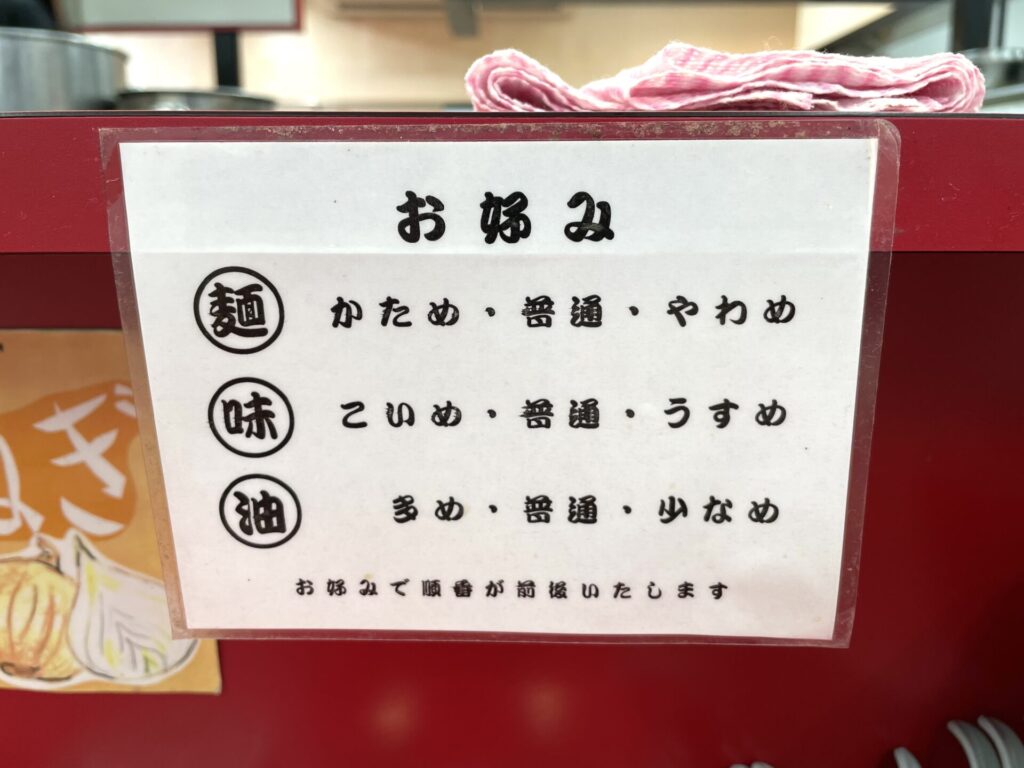 お好み
麺 かため・普通・やわめ
味 こいめ・普通・うすめ
油 多め・普通・少なめ
お好みで順番が前後いたします
ぎ